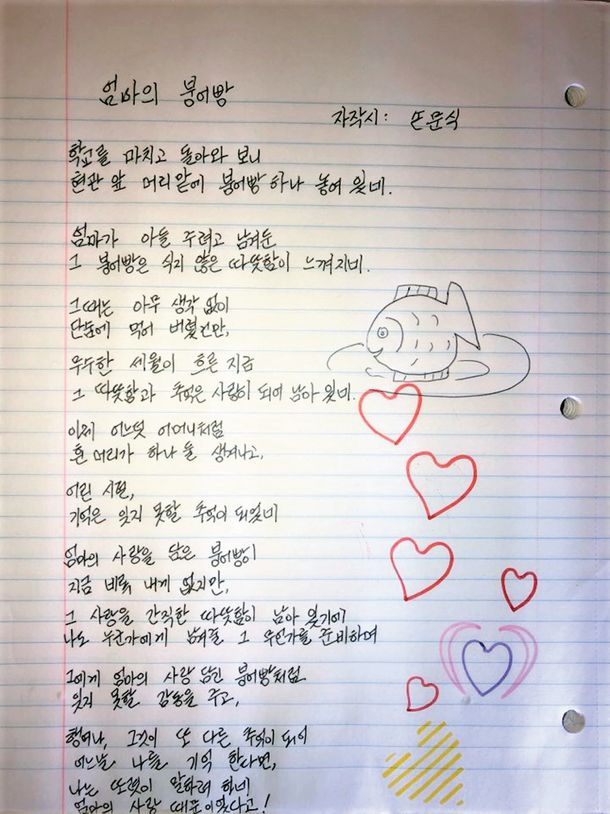 엄마의 붕어빵
자작시: 뜬문식
학교를 마치고 돌아와 보니
현관 앞 머리맡에 붕어빵 하나 놓여 있네.
엄마가 아들 주려고 남겨둔
그 붕어빵은 식지 않은 따뜻함이 느껴지네.
그때는 아무 생각 없이
단숨에 먹어 버렸건만,
무수한 세월이 흐른 지금
그 따뜻함과 추억은 사랑이 되어 남아 있네.
이제 어느덧 어머니처럼
흰 머리가 하나 둘 생겨나고,
어린 시절,
기억은 잊지 못할 추억이 되었네
엄마의 사랑을 담은 붕어빵이
지금 비록 내게 없지만,
그 사랑을 간직한 따뜻함이 남아 있기에
나도 누군가에게 남겨줄 그 무언가를 준비하며
그에게 엄마의 사랑 담긴 붕어빵처럼
잊지 못할 감동을 주고,
행여나, 그것이 또 다른 추억이 되어
어느날 나를 기억 한다면,
나는 또렷이 말하려 하네
엄마의 사랑 때문이었다고!